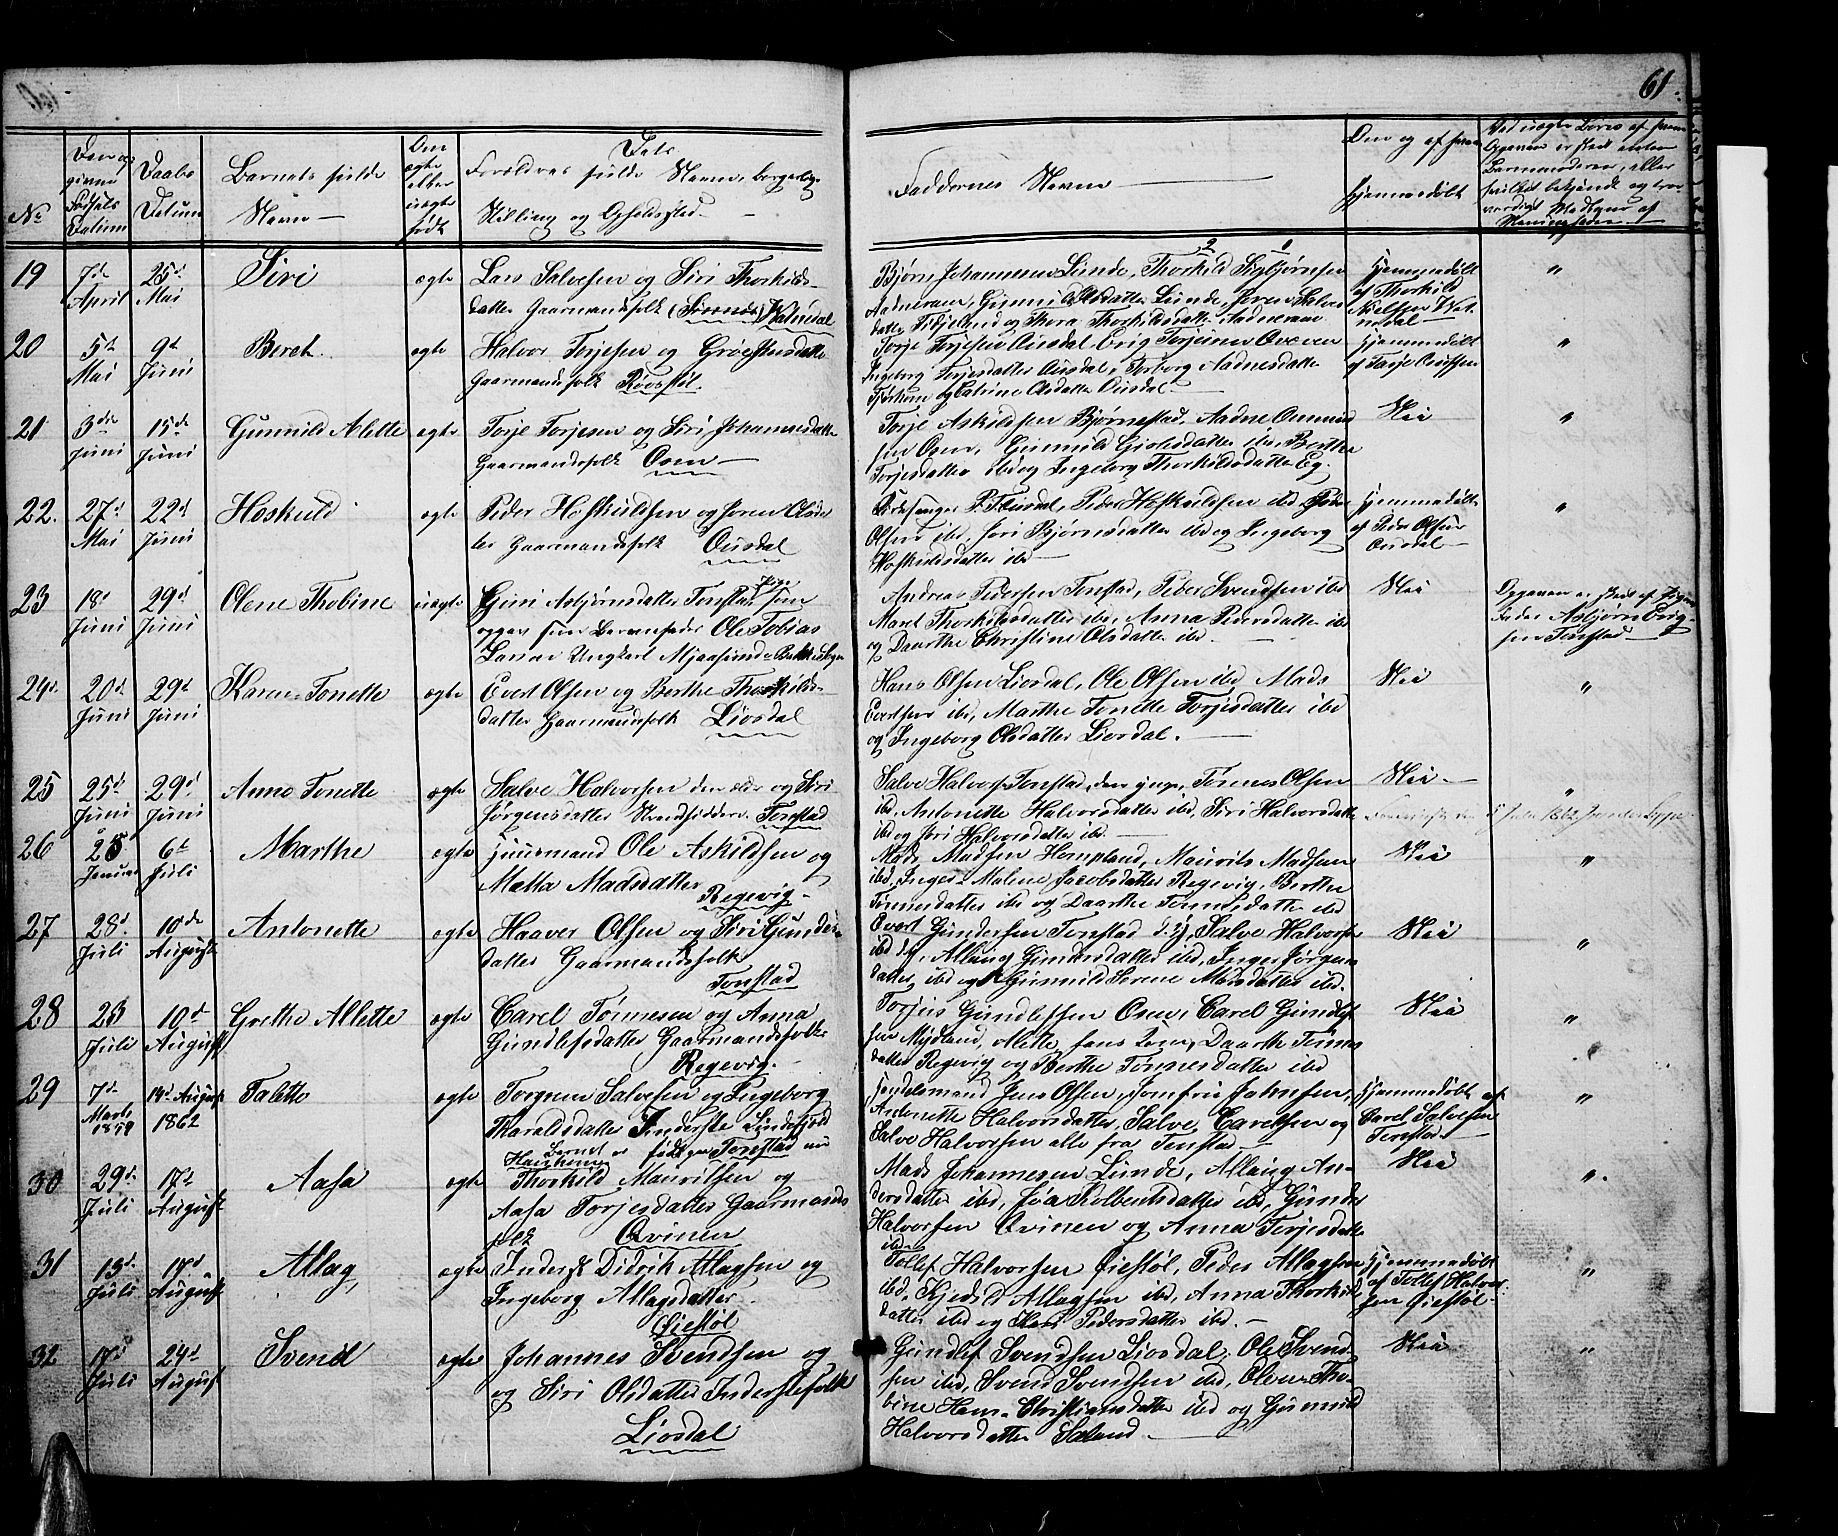 61
No
Den og
givne
Fødsels
Datum
Daabs
Datum
Barnets fulde
Navn
Om
ægte
eller
uægte
født
Dets
Forældres fulde Navne, borgerlige
Stilling og Opholdssted
Faddernes Navne
Om og af hvem
hjemmedøbt
19
7d
April
25d
Mai
Siri
ægte
Lars Salvesen og Siri Thorkilds-
datter Gaarmandsfolk
Bjørn Johannesen Lunde, Thorkild Sigbjørnsen
Aadneram, Gunnild Olsdatter Lunde, Soren Salve
datter Fidjeland og Thora Thorkildsdatter Aadneram
hjemmedøbt
af Thorkild
Nielsen Wat-
nedal
"
20
5d
Mai
9d
Juni
Beret
ægte
Halvor Torjesen og
Gaarmandsfolk Røvstøl
Torje Torjesen Ousdal, Erig Torjesen Qvæven
Ingeborg Torjesdatter Ousdal, Torborg Aadnesdatter
Tjørhom og Catrine Olsdatter Ousdal
hjemmedøbt
af Torje
"
21
3die
Juni
15de
Juni
Gunnild Alette
ægte
Torje Torjesen og Siri Johannesdatter
Gaarmandsfolk Osen
Torje Askildsen Bjørnestad, Aadne Ommun
sen Osen, Gunnuld Girlesdatter ibd, Berthe
Torjesdatter ibd og Ingeborg Thorkildsdatter Eg.
Nei
"
22.
27d
Mai
22d
Juni
Hoskuld
ægte
Peder Hoskuldsen og Joren Olsdat
ter Gaarmandsfolk Ousdal
Kirkesanger P. Fleirdal, Peder Hoskuldsen ibd Peder
Olsen ibd, Jori Bjørnsdatter ibd og Ingeborg
Hoskuldsdatter ibd
hjemmedøbt
af Peder Olsen
Ousdal
"
23
18d
Juni
29d
Juni
Olene Thobine
uægte
Guri Asbjørnsdatter Tonstad Pige som
opgav som Barnefader Ole Tobias
Larsen Ungkarl Mjaasund i Bakke Sogn
Andreas Pedersen Tonstad, Peder Svendsen ibd
Maret Thorkildsdatter ibd, Anna Pedersdatter ibd
og Daarthe Christine Olsdatter ibd
Nei
Opgaven er skeet af Pigens
Fader Asbjørn Erig-
sen Tonstad
24d
20d
Juni
29d
Juni
Karen Tonette
ægte
Evert Olsen og Berthe Thorkilds-
datter Gaarmandsfolk Liosdal
Hans Olsen Liosdal, Ole Olsen ibd Mads
Evertsen ibd, Marthe Tonette Torjesdatter ibd
og Ingeborg Olsdatter Liosdal.
Nei
"
25
25d
Juni
29d
Juni
Anne Tonette
ægte
Salve Halvorsen den ældr og Siri
Jørgensdatter Strandsiddere Tonstad
Salve Halvors. Tonstad, den yngr, Tønnes Olsen
ibd, Antonette Halvorsdatter ibd, Siri Halvorsdatter
ibd og Jori Halvorsdatter ibd
Nei
"
26
25
Januar
6d
Juli
Marthe
ægte
Huusmand Ole Askildsen og
Mætta Madsdatter
Regevig
Mads Madsen Hompland, Maurits Madsen
ibd, Inger Malene Jacobsdatter Regevig, Berthe
Tønnesdatter ibd og Daarthe Tønnesdatter ibd
Nei
"
27
28d
Juli
10de
August
Antonette
ægte
Haaver Olsen og Siri Gunders-
datter Gaarmandsfolk
Tonstad
Evert Gundersen Tonstad, Salve Halvorsen
ibd, Allaug Gundersdatter ibd, Inger Jørgens-
datter ibd og Gunnuld Serene Madsdatter ibd.
Nei
"
28
23
Juli
10d
August
Grethe Allette
ægte
Carel Tønnesen og Anna
Gundlefsdatter Gaarmandsfolk
Regevig
Torjus Gundlefsen Osen, Carel Gundlef
sen Mydland, Alette hans Kone, Daarthe Tønnes
datter Regevig og Berthe Tønnesdatter ibd
Nei
"
29
7d
Marts
1859
14d August
1862
Talette
ægte
Torgrim Salvesen og Ingeborg
Tharaldsdatter Inderste Lindefjeld
Barnet er født paa Tonstad
Handelsmand Jens Olsen, Jomfru Johnsen,
Antonette Halvorsdatter, Salve Carelsen og
Salve Halvorsen alle fra Tonstad
hjemmedøbt af
Carel Salvesen
Tonstad
"
30
29d
Juli
17d
August
Aasa
ægte
Thorkild Mauritsen og
Aasa Torjesdatter Gaarmands
folk Qvinen
Mads Johannesen Lunde, Allaug An-
dersdatter ibd, Joa Kolbentsdatter ibd, Gunder
Halvorsen Qvinen og Anna Torjesdatter
ibd
Nei
"
31
13d
Juli
17d
August
Allag
ægte
Inderst Didrik Allagsen og
Ingeborg Allagsdatter
Øiestøl
Tollef Halvorsen Øiestøl, Peder Allagsen
ibd, Kjeds Allagsen ibd, Anna Thorkilds
datter ibd og Pedersdatter ibd.
hjemmedøbt
af Tollef Halvor
sen Øiestøl
"
32
17d
Juli
24d
August
Svend
ægte
Johannes Svendsen og
og Siri Olsdatter Inderstefolk
Liosdal
Gundlef Svendsen Liosdal, Ole Svend-
sen ibd, Svend Svendsen ibd, Olene Tho-
bine Hans Christiansdatter ibd og Gunnuld
Halvorsdatter Saland
Nei
"